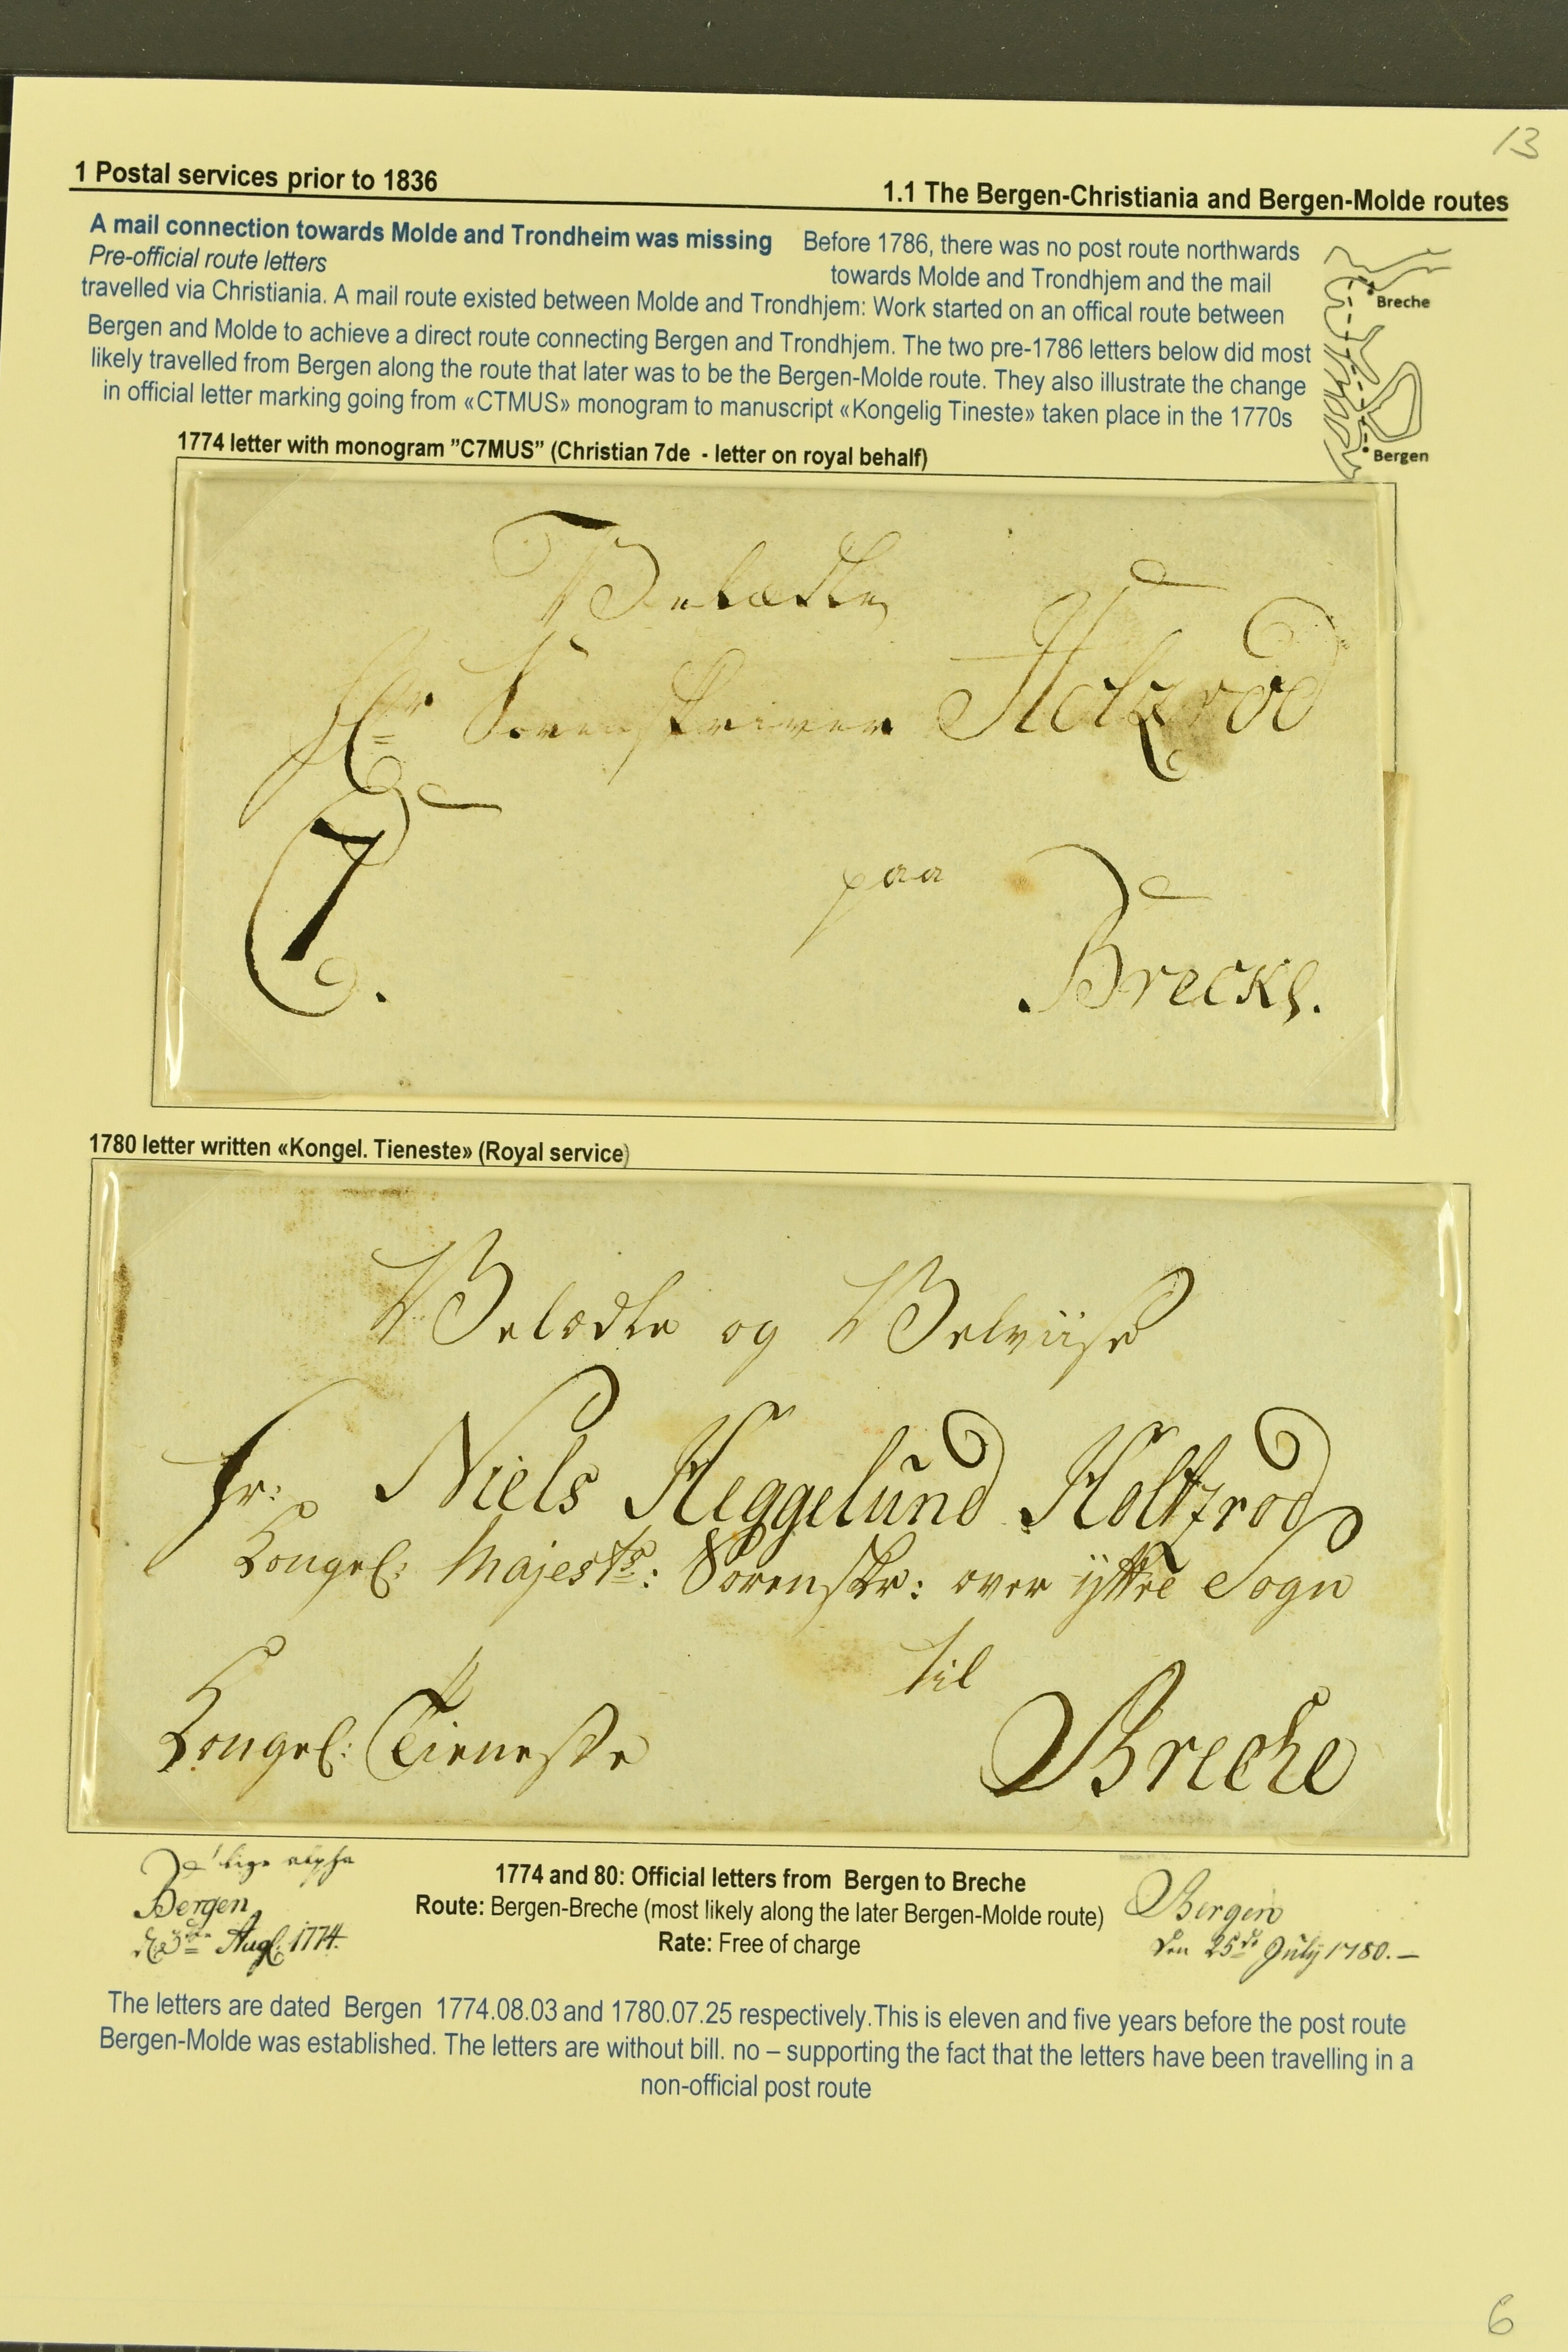 13
1 Postal services prior to 1836
1.1 The Bergen-Christiania and Bergen-Molde routes
A mail connection towards Molde and Trondheim was missing Before 1786, there was no post route northwards
Pre-official route letters towards Molde and Trondhjem and the mail
travelled via Christiania. A mail route existed between Molde and Trondhjem: Work started on an offical route between
Bergen and Molde to achieve a direct route connecting Bergen and Trondhjem. The two pre-1786 letters below did most
likely travelled from Bergen along the route that later was to be the Bergen-Molde route. They also illustrate the change
in official letter marking going from «CTMUS» monogram to manuscript «Kongelig Tineste» taken place in the 1770s
Breche
Bergen
1774 letter with monogram ”C7MUS” (Christian 7de - letter on royal behalf)
Velædle
Hr Sorenskriver Holzrod
C7.
paa
Breche.
1780 letter written «Kongel. Tieneste» (Royal service)
Velædle og Velviise
Hr: Niels Heggelund Holtzrod
Kongel: Majests: Sorenskr: over ÿttre Sogn
til
Kongel: Tieneste
Breche
Bergen
d 3 Aug 1774.
1774 and 80: Official letters from Bergen to Breche
Route: Bergen-Breche (most likely along the later Bergen-Molde route)
Rate: Free of charge
Bergen
den 25de Julÿ 1780.—
The letters are dated Bergen 1774.08.03 and 1780.07.25 respectively.This is eleven and five years before the post route
Bergen-Molde was established. The letters are without bill. no – supporting the fact that the letters have been travelling in a
non-official post route
6